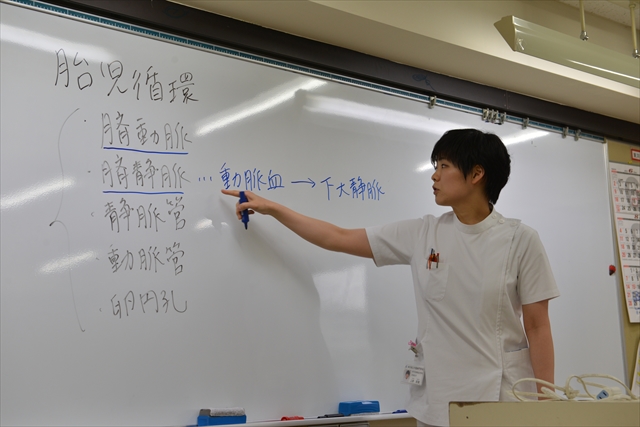 胎児循環
・臍動脈
・臍静脈…動脈血→下大静脈
・静脈管
・動脈管
・卵円孔